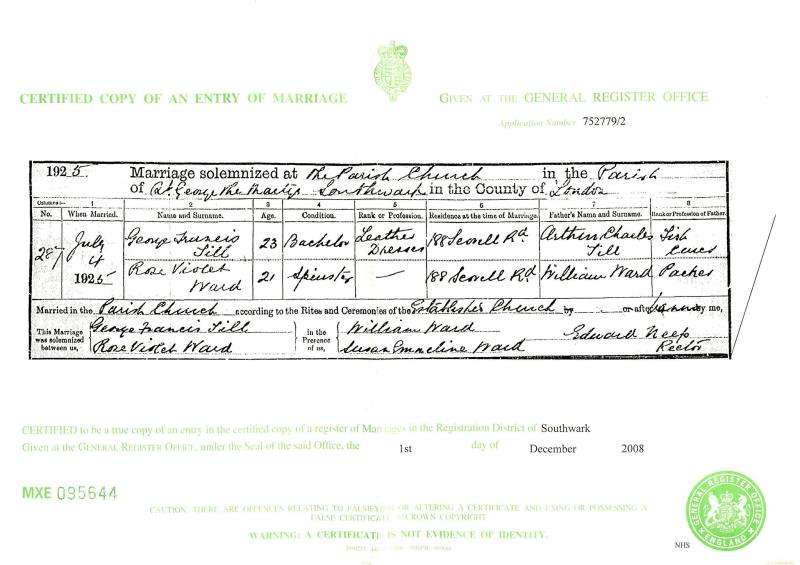 CERTIFIED COPY OF AN ENTRY OF MARRIAGE
GIVEN AT THE GENERAL REGISTER OFFICE
Application Number 752779/2
1925. Marriage solemnized at the Parish Church in the Parish
of St. George the Martyr Southwark in the County of London
Columns:— 1 2 3 4 5 6 7 8
No. When Married. Name and Surname. Age. Condition. Rank or Profession. Residence at the time of Marriage. Father's Name and Surname. Rank or Profession of Father.
287 July 4 1925
George Francis Till 23 Bachelor Leather Dresser 188 Scovell Rd. Arthur Charles Till Fish Curer
Rose Violet Ward 21 Spinster — 188 Scovell Rd. William Ward Packer
Married in the Parish Church according to the Rites and Ceremonies of the Established Church by or after Banns by me,
This Marriage was solemnized between us,
George Francis Till
Rose Violet Ward
in the Presence of us,
William Ward
Susan Emmeline Ward
Edward Neep
Rector
CERTIFIED to be a true copy of an entry in the certified copy of a register of Marriages in the Registration District of Southwark
Given at the GENERAL REGISTER OFFICE, under the Seal of the said Office, the 1st day of December 2008
MXE 095644
CAUTION: THERE ARE OFFENCES RELATING TO FALSIFYING OR ALTERING A CERTIFICATE AND USING OR POSSESSING A
FALSE CERTIFICATE. CROWN COPYRIGHT
WARNING: A CERTIFICATE IS NOT EVIDENCE OF IDENTITY.
NHS
GENERAL REGISTER OFFICE
ENGLAND